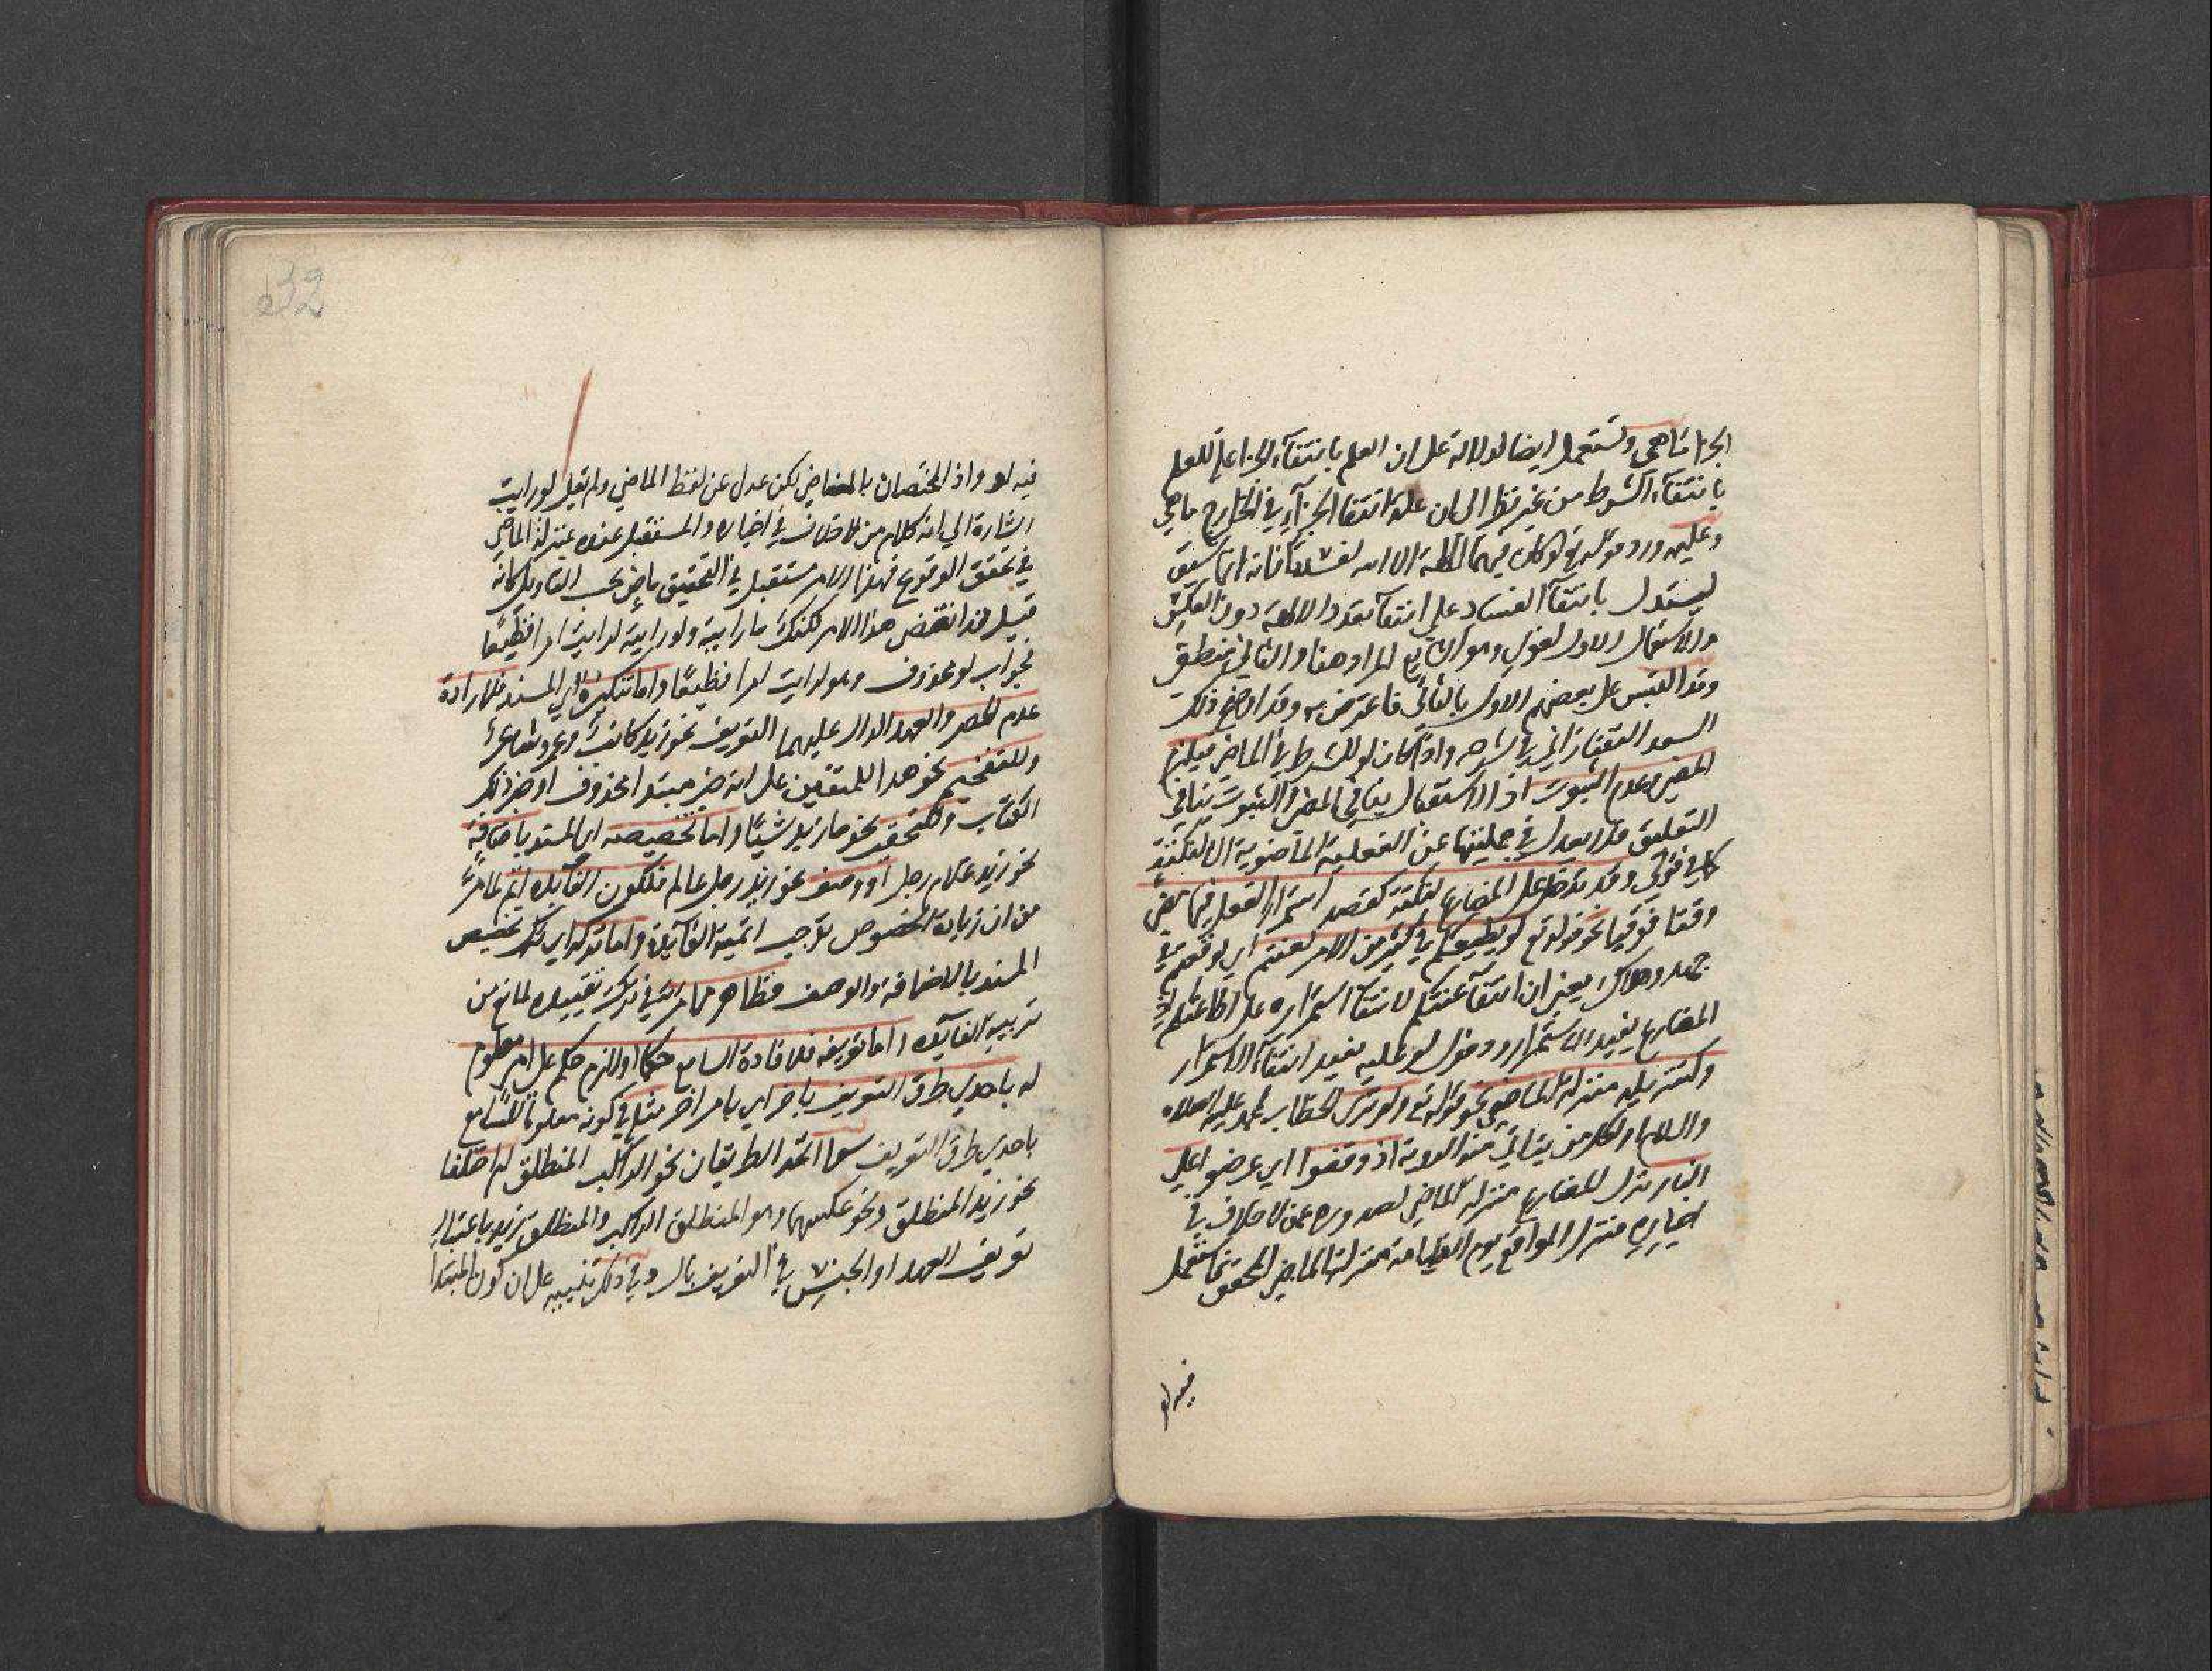 الجزا ماهي وتستعمل ايضا للدلالة على ان العلم بانتفاء الجزا علة للعلم
بانتفاء الشرط من غير نظر الى ان علة انتفا الجزاء في الخارج ماهي
وعليه ورد قوله تع لو كان فيهما الهة الا الله لفسدتا فانه انما سيق
ليستدل بانتفاء الفساد على انتفاء تعدد الالهة دون العكس
والاستعمال الاول لغوي وهو الشايع المراد هنا والثاني منطقي
وقد التبس على بعضهم الاول بالثاني فاعترض به وقد اوضح ذلك
السعد التفتازاني في شرحه واذا كان لو للشرط في الماضي فيلزم
المضي وعدم الثبوت اذ الاستقبال ينافي المضي والثبوت ينافي
التعليق فلا يعدل في جملتيها عن الفعلية الماضوية الا لنكتة
كما في قولي وقد تدخل على المضارع لنكتة كقصد استمرار الفعل فيما مضى
وقتا فوقتا نحو قوله تع لو يطيعكم في كثير من الامر لعنتم اي لوقعتم في
جهد وهلاك يعني ان انتفاء عنتكم لانتفاء استمراره على اطاعتكم لان
المضارع يفيد الاستمرار ودخول لو عليه يفيد انتفاء الاستمرار
وكتنزيله منزلة الماضي نحو قوله تع ولو ترى الخطاب لمحمد عليه الصلاة
والسلام او لكل من يتاتى منه الروية اذ وقفوا اي عرضوا على
النار نزل المضارع منزلة الماضي لصدوره عمن لا خلاف في
اخباره منزل المواقع يوم القيامة منزلة الماضي المحقق فاستعمل
فيه لو
فيه لو واذ المختصان بالماضي لكن عدل عن لفظ الماضي ولم يقل لو رايت
اشارة الى انه كلام من لا خلاف في اخباره والمستقبل عنده بمنزلة الماضي
في تحقق الوقوع فهذا الامر مستقبل في التحقيق ماض بحسب التاويل كانه
قيل قد انقضى هذا الامر لكنك ما رايته ولو رايته لرايت امرا فظيعا
فجواب لو محذوف وهو لرايت امرا فظيعا واما تنكيره اي المسند فلارادة
عدم الحصر والعهد الدال عليهما التعريف نحو زيد كاتب وعمرو شاعر
وللتفخيم نحو هدا للمتقين على انه خبر مبتدا محذوف او خبر ذلك
الكتاب وللتحقير نحو ما زيد شيئا واما تخصيصه اي المسند باضافة
نحو زيد غلام رجل او وصف نحو زيد رجل عالم فلكون الفايدة اتم لما مر
من ان زيادة الخصوص توجب اتمية الفايدة واما تركه اي ترك تخصيص
المسند بالاضافة والوصف فظاهر مما مر في ترك تقييده لمانع من
تربية الفايدة واما تعريفه فلافادة السامع حكما او لازم حكم على امر معلوم
له باحدي طرق التعريف باخر اي بامر اخر مثله في كونه معلوما للسامع
باحدي طرق التعريف سوا اتحد الطريقان نحو الراكب المنطلق ام اختلفا
نحو زيد المنطلق ونحو عكسهما وهو المنطلق الراكب والمنطلق زيد باعتبار
تعريف العهد او الجنس في التعريف بال وفي ذلك تنبيه على ان كون المبتدا
32